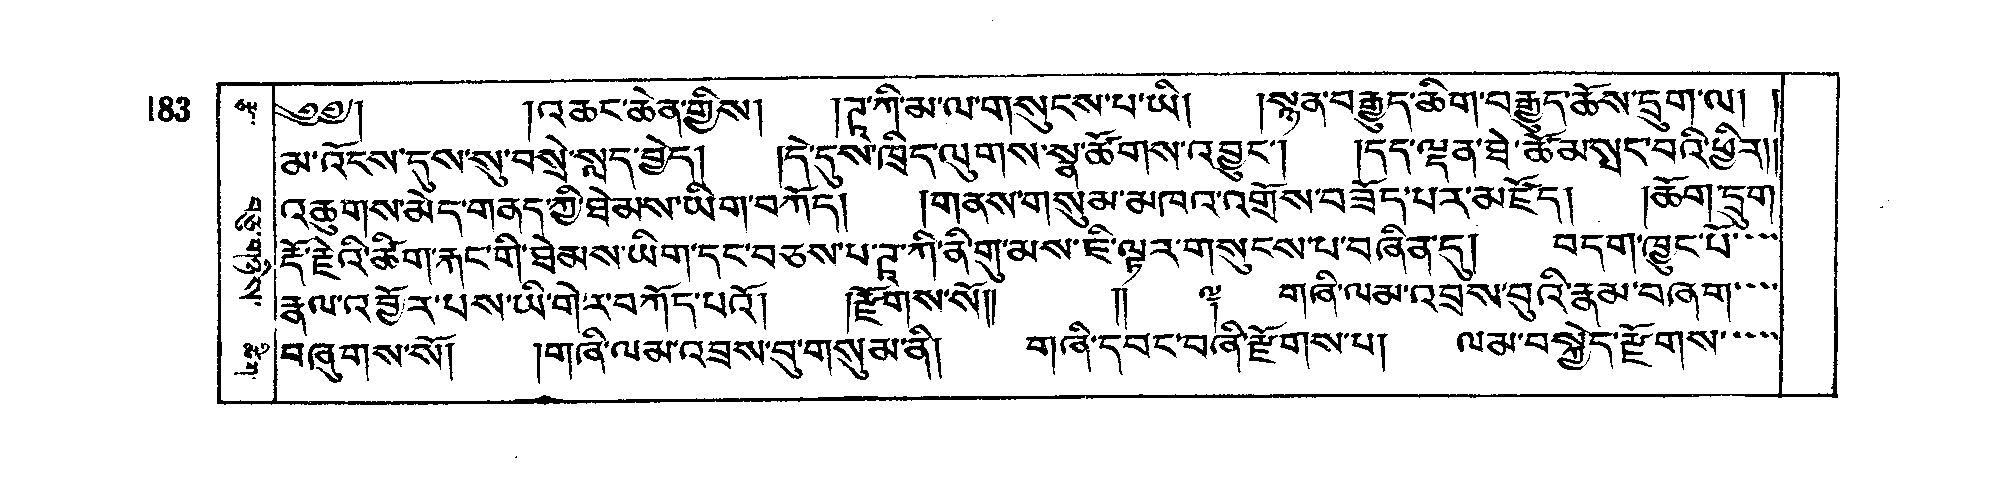 183
༄༅། །འཆང་ཆེན་གྱིས། །ཌཱ་ཀི་མ་ལ་གསུངས་པ་ཡི། །སྙན་བརྒྱུད་ཆིག་བརྒྱུད་ཆོས་དྲུག་ལ། །
མ་འོངས་དུས་སུ་བསྲེ་སླད་བྱེད། །དེ་དུས་ཁྲིད་ལུགས་སྣ་ཚོགས་འབྱུང་། །དད་ལྡན་ཐེ་ཚོམ་སྤང་བའི་ཕྱིར།།
འཆུགས་མེད་གནད་ཀྱི་ཐེམས་ཡིག་བཀོད། །གནས་གསུམ་མཁའ་འགྲོས་བཟོད་པར་མཛོད། །ཆོག་དྲུག
རྡོ་རྗེའི་ཚིག་རྐང་གི་ཐེམས་ཡིག་དང་བཅས་པ་ཌཱ་ཀི་ནི་གུ་མས་ཇི་ལྟར་གསུངས་པ་བཞིན་དུ། བདག་ཁྱུང་པོ་
རྣལ་འབྱོར་པས་ཡི་གེར་བཀོད་པའོ། །རྫོགས་སོ།། །། ༈ གཞི་ལམ་འབྲས་བུའི་རྣམ་བཞག་
བཞུགས་སོ། །གཞི་ལམ་འབྲས་བུ་གསུམ་ནི། གཞི་དབང་བཞི་རྫོགས་པ། ལམ་བསྐྱེད་རྫོགས་